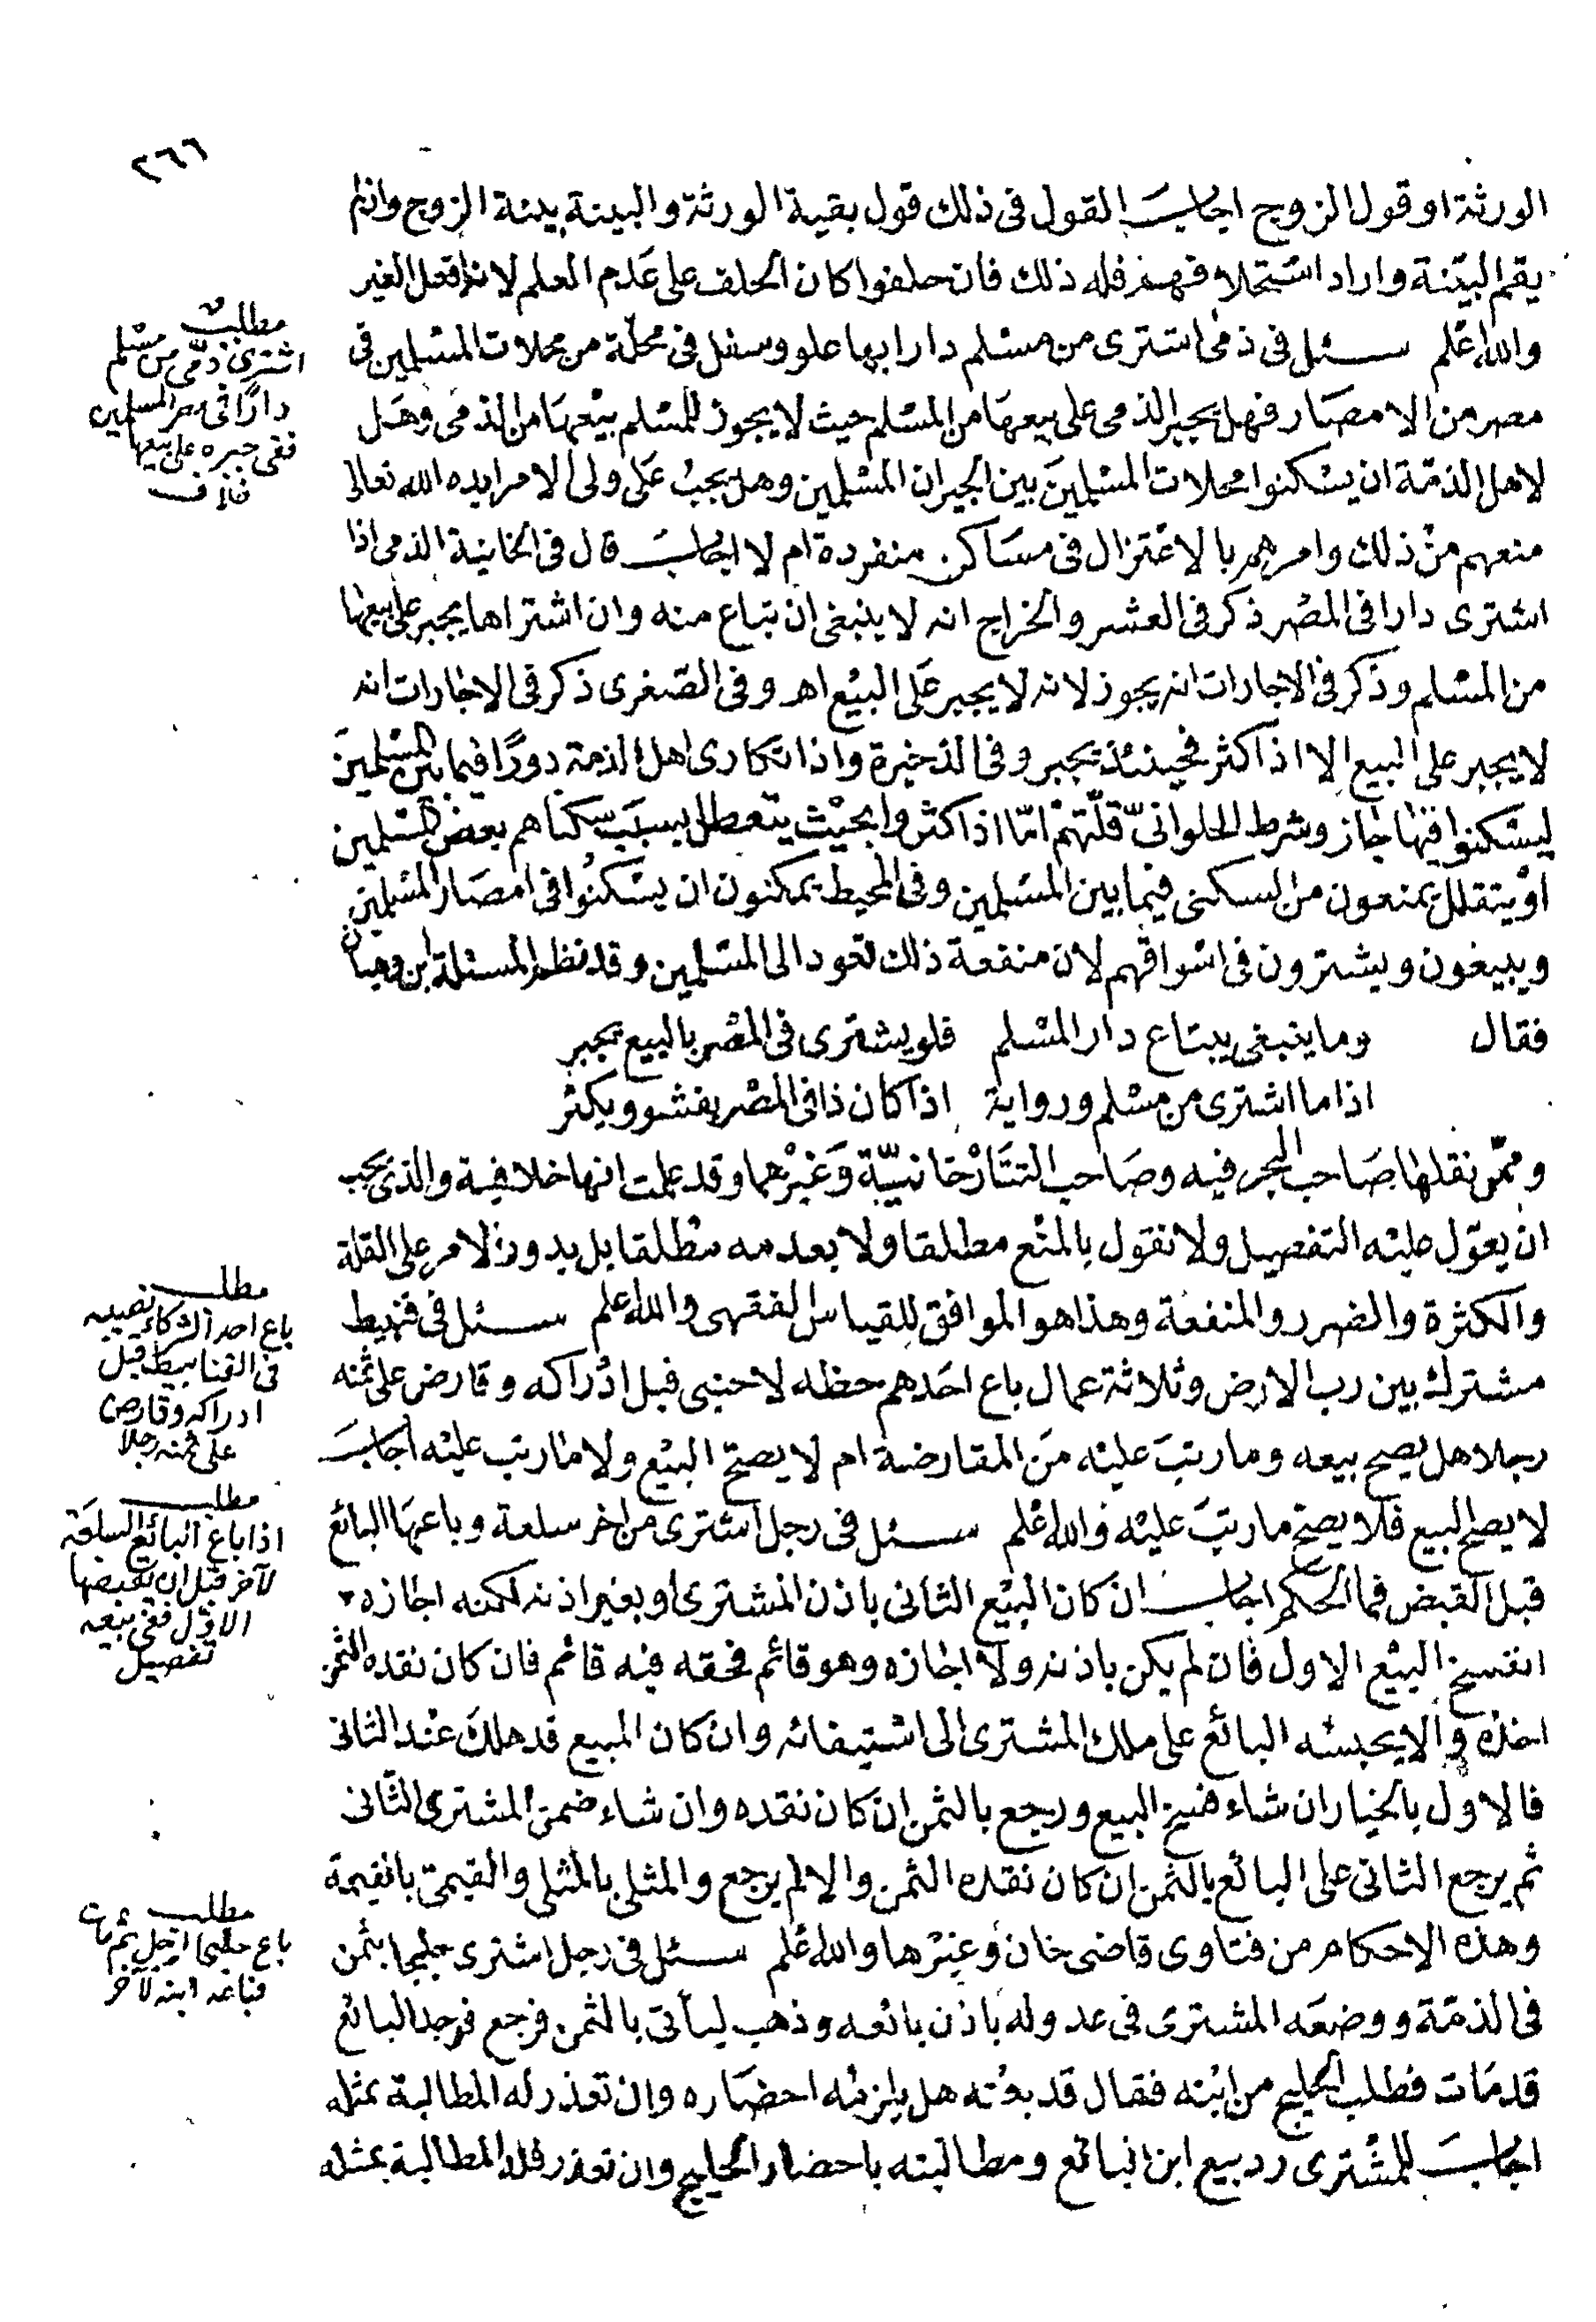 ٢٦٦
الورثة او قول الزوج اجاب القول فى ذلك قول بقية الورثة والبينة بينة الزوج وان لم
يقم البيّنة واراد استحلافهم فله ذلك فان حلفوا كان الحلف على عدم العلم لانه فعل الغير
والله اعلم سئل فى ذمى اشترى من مسلم دارا بها علو وسفل فى محلّة من محلات المسلمين فى
مصر من الامصار فهل يجبر الذمى على بيعها من المسلم حيث لا يجوز للمسلم بيعها من الذمى وهل
لاهل الذمّة ان يسكنوا محلات المسلمين بين الجيران المسلمين وهل يجب على ولى الامر ايده الله تعالى
منعهم من ذلك وامرهم بالاعتزال فى مساكن منفردة ام لا اجاب قال فى الخانية الذمى اذا
اشترى دارا فى المصر ذكر فى العشر والخراج انه لا ينبغى ان تباع منه وان اشتراها يجبر على بيعها
من المسلم وذكر فى الاجارات انه يجوز لانه لا يجبر على البيع اهـ وفى الصّغرى ذكر فى الاجارات انه
لا يجبر على البيع الا اذا كثر فحينئذ يجبر وفى الذخيرة واذا تكارى اهل الذمة دورًا فيما بين المسلمين
ليسكنوا فيها جاز وشرط الحلوانىّ قلّتهم امّا اذا كثروا بحيث يتعطل بسبب سكناهم بعض المسلمين
او يتقلل يمنعون من السكنى فيما بين المسلمين وفى المحيط يمكنون ان يسكنوا فى امصار المسلمين
ويبيعون ويشترون فى اسواقهم لان منفعة ذلك تعود الى المسلمين وقد نظم المسئلة ابن وهبان
فقال وما ينبغى يبتاع دار المسلم فلو يشترى فى المصر بالبيع يجبر
اذا ما اشترى من مسلم ورواية اذا كان ذا فى المصر يفشو ويكثر
وممّن نقلها صاحب البحر فيه وصاحب التتارخانيّة وغيرهما وقد علمت انها خلافية والذى يجب
ان يعوّل عليه التفصيل ولا نقول بالمنع مطلقا ولا بعدمه مطلقا بل يدور الامر على القلة
والكثرة والضرر والمنفعة وهذا هو الموافق للقياس الفقهى والله اعلم سئل فى قنبيط
مشترك بين رب الارض وثلاثة عمال باع احدهم حظه لاجنبى قبل ادراكه وقارض على ثمنه
رجلا هل يصح بيعه وما رتب عليه من المقارضة ام لا يصح البيع ولا ما رتب عليه اجاب
لا يصح البيع فلا يصح ما رتب عليه والله اعلم سئل فى رجل اشترى من اخر سلعة وباعها البائع
قبل القبض فما الحكم اجاب ان كان البيع الثانى باذن المشترى او بغير اذنه لكنه اجازه
انفسخ البيع الاول فان لم يكن باذنه ولا اجازه وهو قائم فحقه فيه قائم فان كان نقده الثمن
اخذه والا يحبسه البائع على ملك المشترى الى استيفائه وان كان المبيع قد هلك عند الثانى
فالاول بالخيار ان شاء فسخ البيع ورجع بالثمن ان كان نقده وان شاء ضمن المشترى الثانى
ثم يرجع الثانى على البائع بالثمن ان كان نقده الثمن والا لم يرجع والمثلى بالمثلى والقيمى بالقيمة
وهذه الاحكام من فتاوى قاضى خان وغيرها والله اعلم سئل فى رجل اشترى حليجا بثمن
فى الذمّة ووضعه المشترى فى عدوله باذن بائعه وذهب ليأتى بالثمن فرجع فوجد البائع
قد مات فطلب الحليج من ابنه فقال قد بعته هل يلزمه احضاره وان تعذر له المطالبة بمثله
اجاب للمشترى رد بيع ابن البائع ومطالبته باحضار الحليج وان تعذر فله المطالبة بمثله
مطلب
اشترى ذمّى من مسلم
دارًا فى مصر المسلمين
ففى جبره على بيعها
خلاف
مطلب
باع احد الشركاء نصيبه
فى القنابيط قبل
ادراكه وقارض
على ثمنه رجلا
مطلب
اذا باع البائع السلعة
لآخر قبل ان يقبضها
الاوّل ففى بيعه
تفصيل
مطلب
باع حليجا لرجل ثم مات
فباعه ابنه لآخر